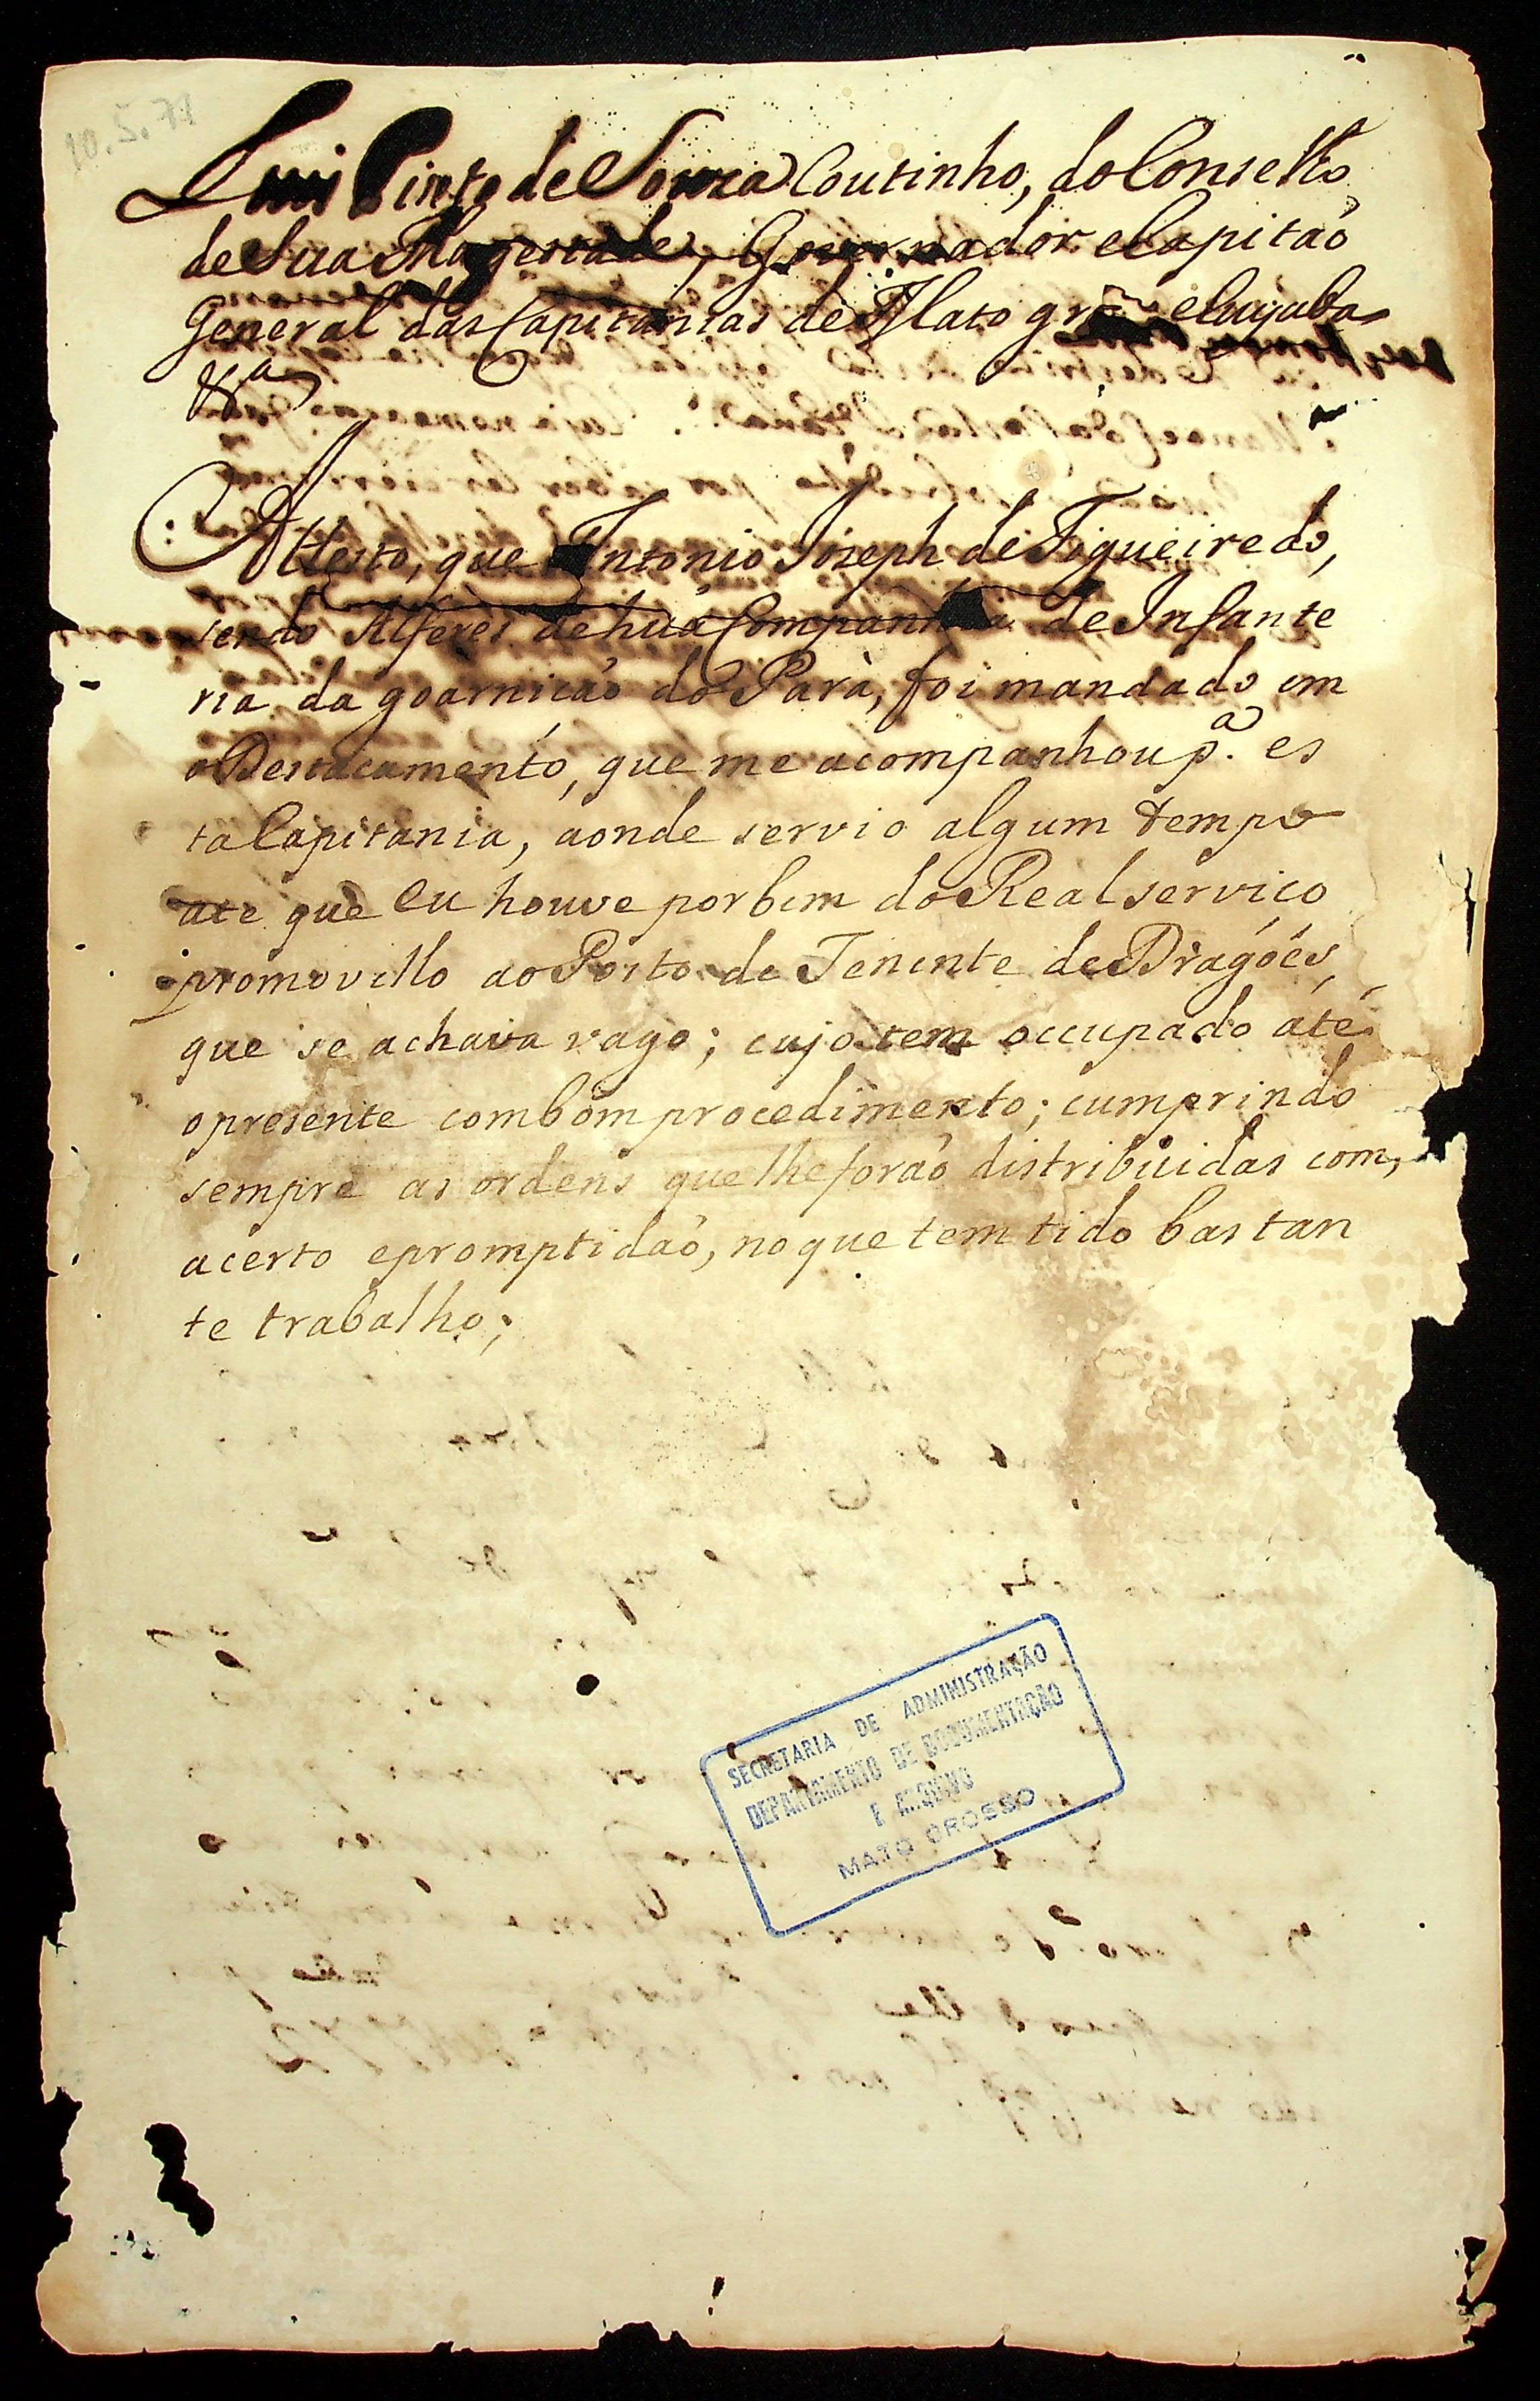 10.5.71
Luis Pinto de Souza Coutinho, do Conselho
de Sua Magestade, Governador e Capitaõ
General das Capitanias de Mato gro e Cuyaba
&a
Attesto, que Antonio Joseph de Figueiredo,
sendo Alferes de huã Companhia de Infante
ria da goarniçaõ do Parà, foi mandado em
o Destacamento, que me acompanhou p.a es
ta Capitania, aonde servio algum tempo
até que Eu houve por bem do Real serviço
promovello ao Posto de Tenente de Dragoẽs,
que se achava vago; cujo tem occupado até
o presente com bom procedimento; cumprindo
sempre as ordens que lhe foraõ distribuidas com,
acerto e promptidaõ, no que tem tido bastan
te trabalho;
SECRETARIA DE ADMINISTRAÇÃO
DEPARTAMENTO DE DOCUMENTAÇÃO
E ARQUIVO
MATO GROSSO